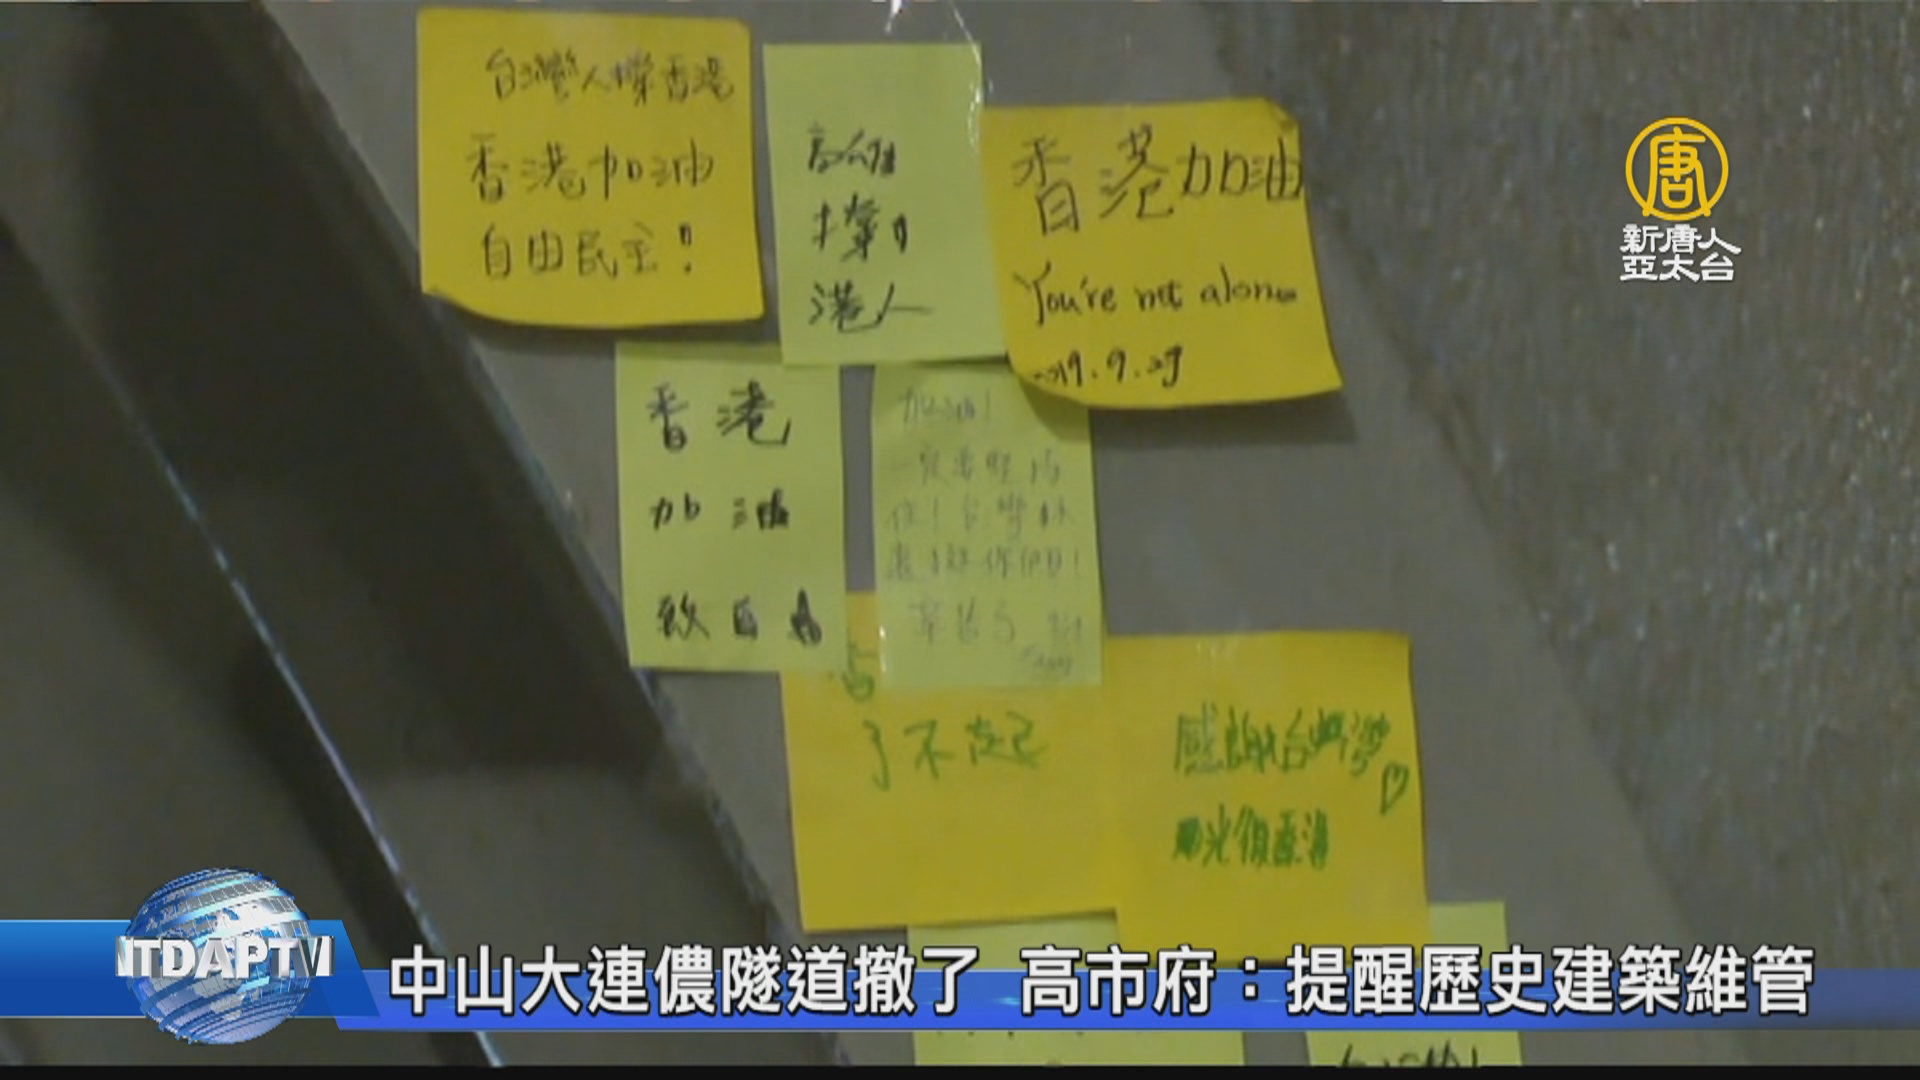 台灣人撐香港
香港加油
自由民主!
高雄
撐
港人
香港加油
You're not alone
2019.9.29
唐
新唐人
亞太台
香港
加油
加油!
一定要堅持
住!台灣林
了不起
感謝台灣♡
光復香港
NTDAPTV
中山大連儂隧道撤了 高市府:提醒歷史建築維管